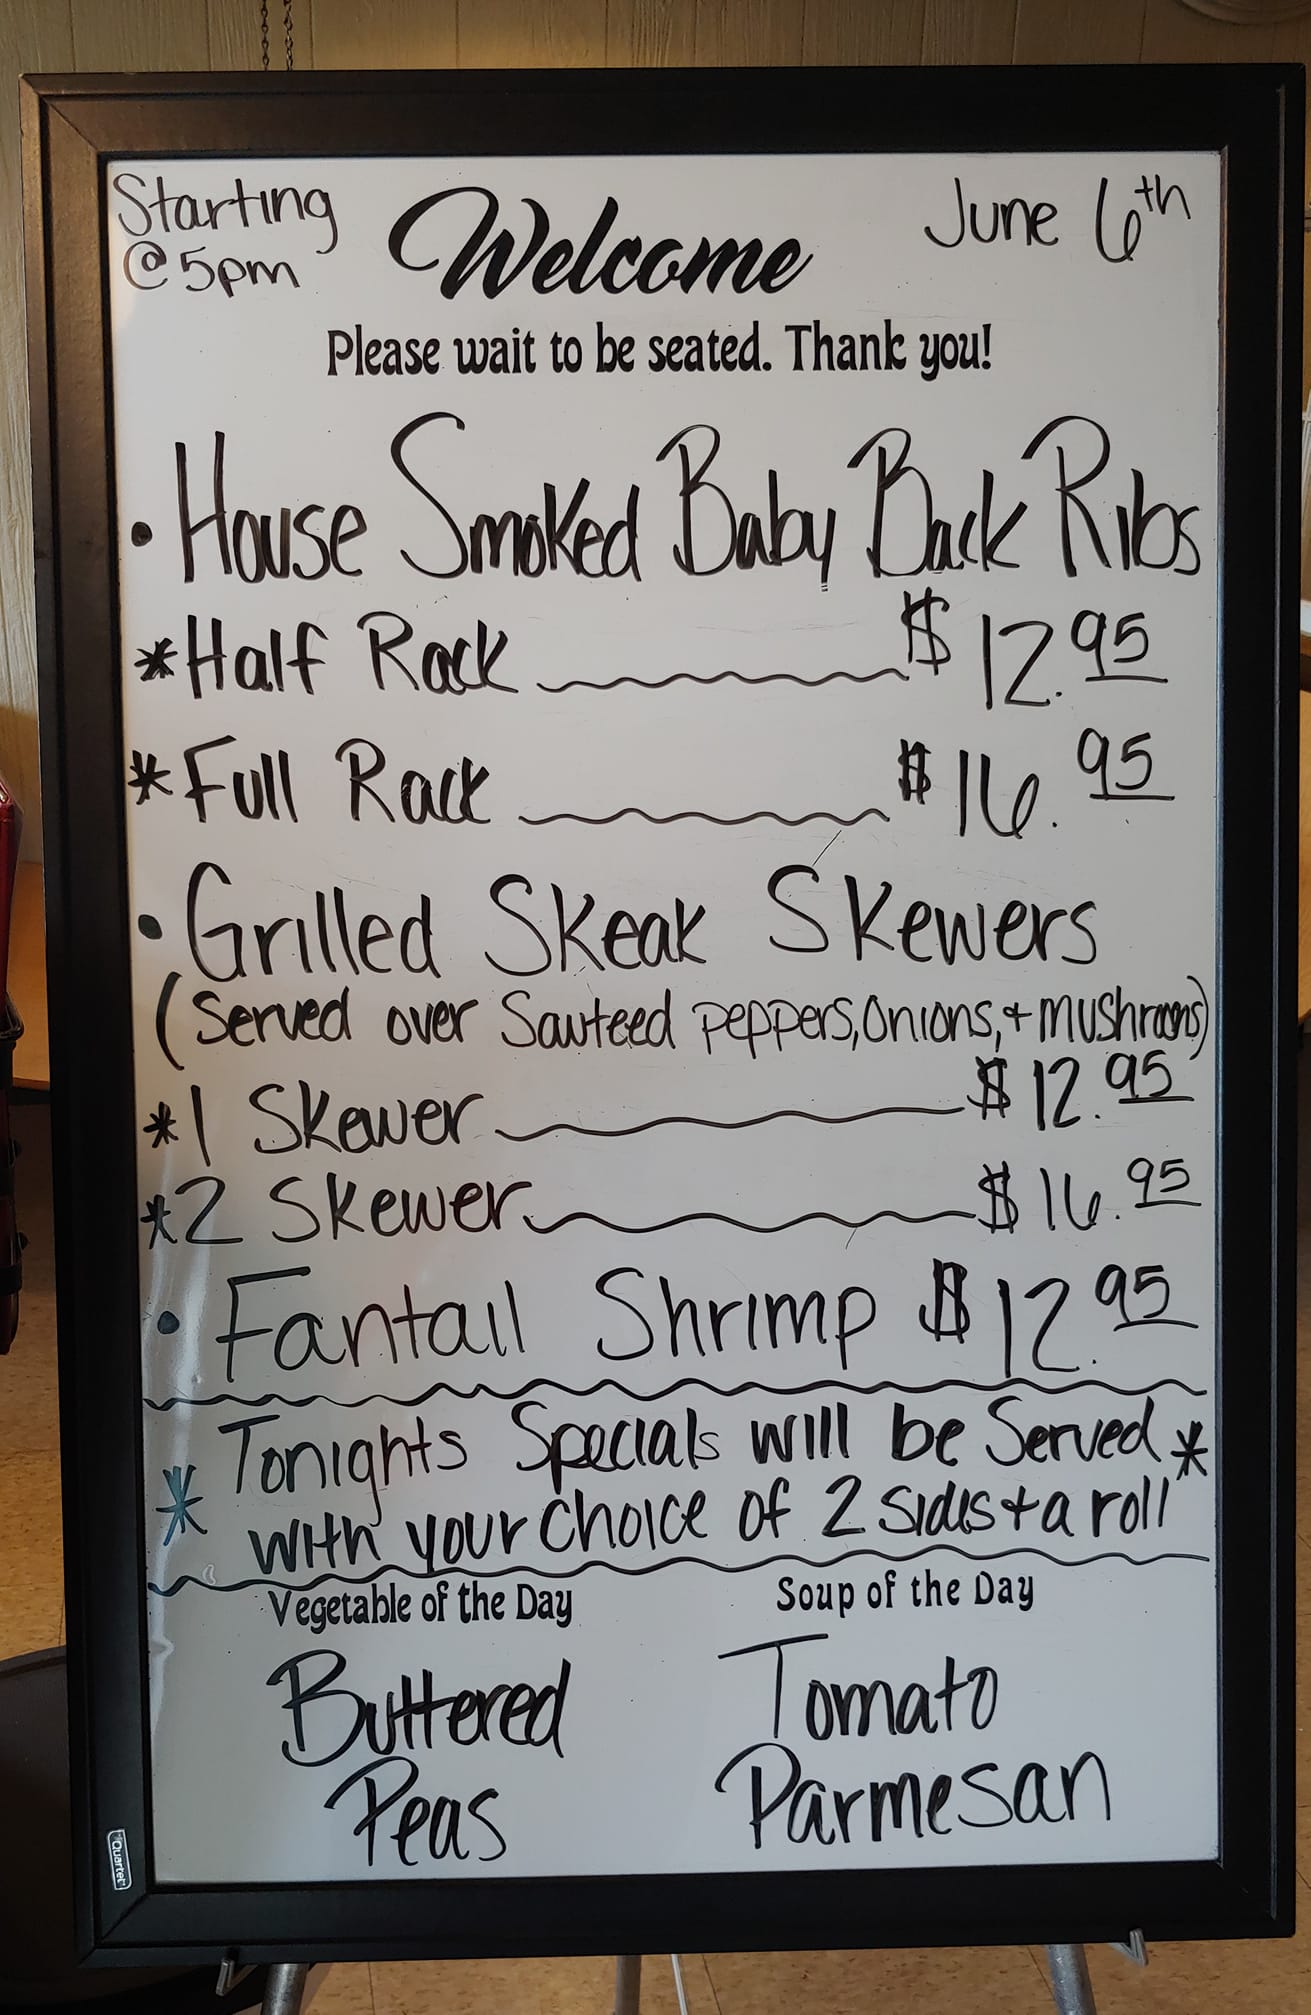 Starting
@ 5pm
Welcome
June 6th
Please wait to be seated. Thank you!
• House Smoked Baby Back Ribs
*Half Rack $ 12.95
*Full Rack $ 16.95
• Grilled Skeak Skewers
(Served over Sauteed peppers, Onions, + mushrooms)
*1 Skewer $ 12.95
*2 Skewer $ 16.95
• Fantail Shrimp $ 12.95
Tonights Specials will be Served *
* with your choice of 2 sides + a roll
Vegetable of the Day
Buttered
Peas
Soup of the Day
Tomato
Parmesan
Quartet